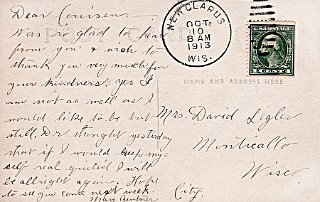 Dear Cousin
Was so glad to hear
from you & wish to
thank you very much for
your kindness. yes I
am not as well as I
would like to be but
still, Dr thought yesterday
that if I would keep my
self real quiet I will
be all right again. Hope
to see you come next week.
Mary
NEW GLARUS
OCT.
10
8 AM
1913
WIS.
NAME AND ADDRESS HERE
Mrs. David Legler
Monticello
Wisc
City.